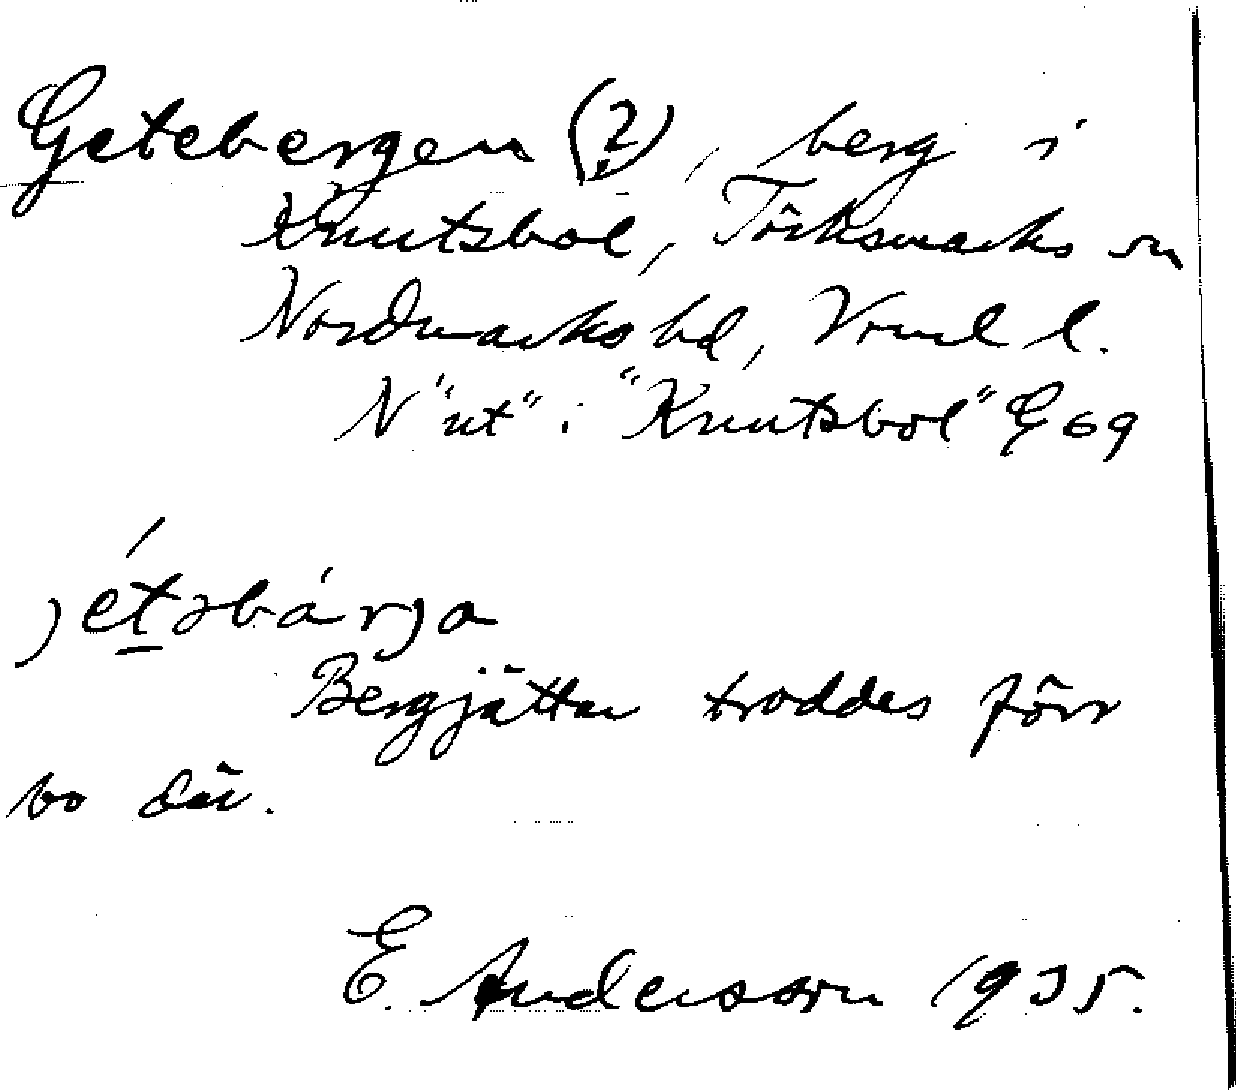 Getebergen (?), berg i
Knutsbol, Töcksmarks sn
Nordmarks hd, Vrml l.
N "ut" i "Knutsbol" G 69
jétəbárja
Bergjättar troddes förr
bo där.
E. Andersson 1935.